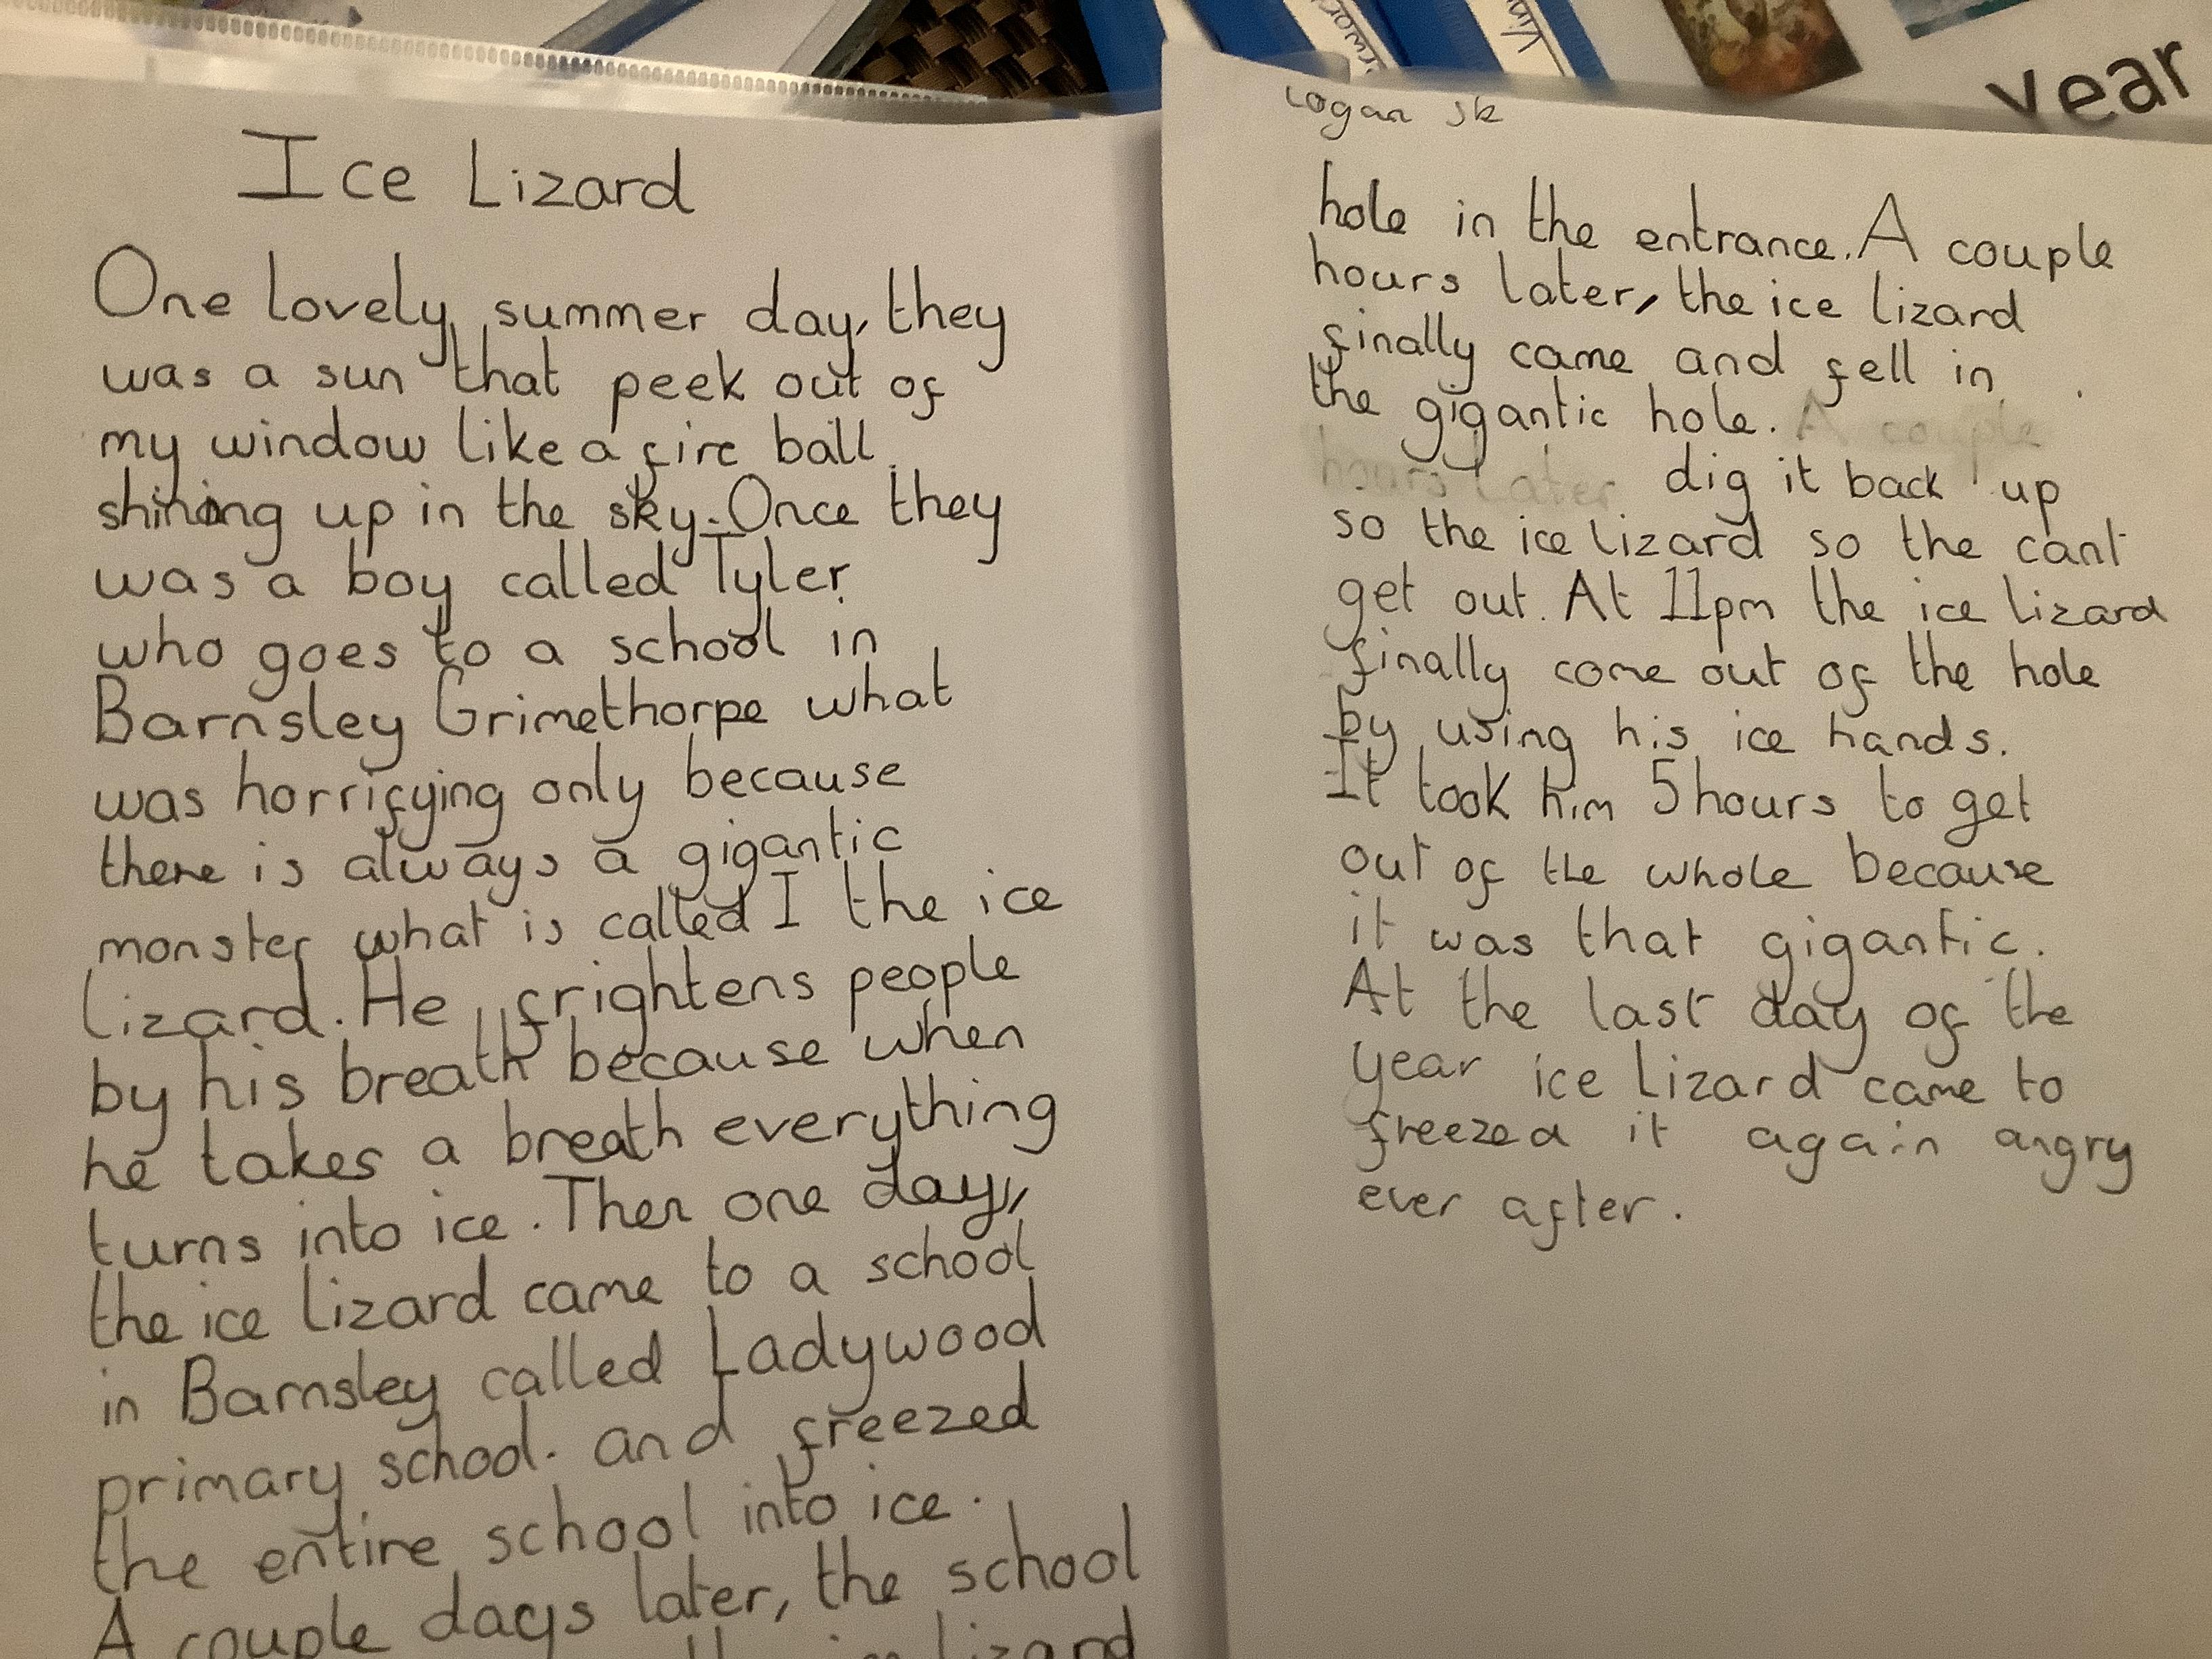 year
Ice Lizard
One lovely summer day, they
was a sun that peek out of
my window like a fire ball
shining up in the sky. Once they
was a boy called Tyler
who goes to a school in
Barnsley Grimethorpe what
was horrifying only because
there is always a gigantic
monster what is called I the ice
lizard. He frightens people
by his breath because when
he takes a breath everything
turns into ice. Then one day,
the ice lizard came to a school
in Barnsley called Ladywood
primary school. and freezed
the entire school into ice.
A couple days later, the school
lizard
Logan
hole in the entrance. A couple
hours later, the ice lizard
finally came and fell in
the gigantic hole. A couple
hours later dig it back up
so the ice lizard so the cant
get out. At 11pm the ice lizard
finally come out of the hole
by using his ice hands.
It took him 5 hours to get
out of the whole because
it was that gigantic.
At the last day of the
year ice lizard came to
freezed it again angry
ever after.